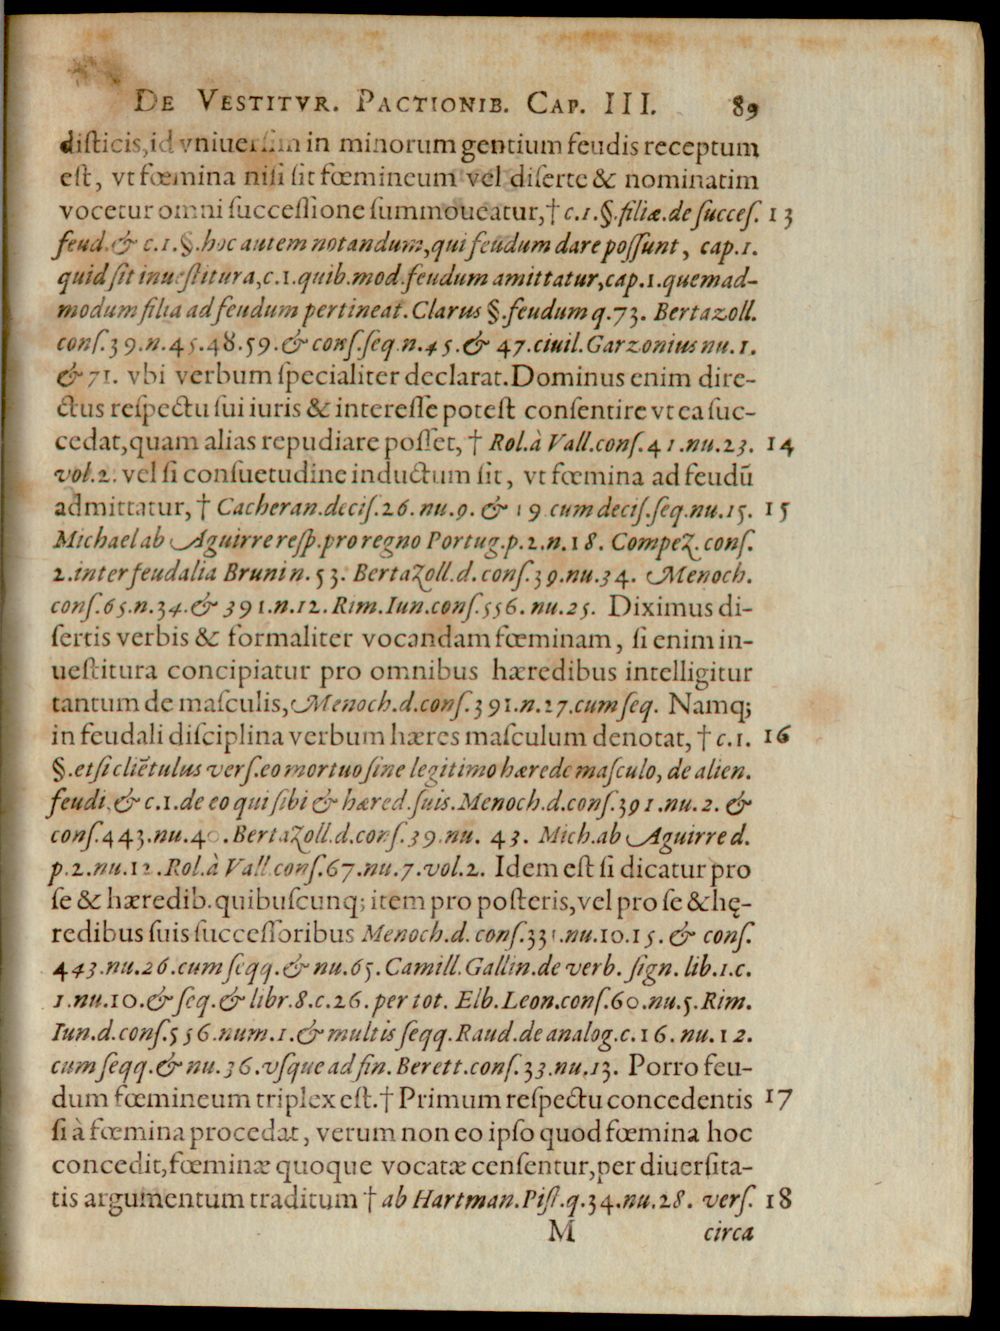 De Vestitvr. Pactionib. Cap. III. 89
disticis, id vniuersim in minorum gentium feudis receptum
est, vt fœmina nisi sit fœmineum vel diserte & nominatim
vocetur omni successione summoueatur, † c.1.§.filiæ.de succes. 13
feud.& c.1.§.hoc autem notandum, qui feudum dare possunt, cap.1.
quid sit inuestitura, c.1.quib.mod.feudum amittatur, cap.1.quemad-
modum filia ad feudum pertineat. Clarus §.feudum q.73. Bertazoll.
cons.39.n.45.48.59.& cons.seq.n.45.& 47.ciuil.Garzonius nu.1.
& 71. vbi verbum specialiter declarat. Dominus enim dire-
ctus respectu sui iuris & interesse potest consentire vt ea suc-
cedat, quam alias repudiare posset, † Rol.à Vall.cons.41.nu.23. 14
vol.2. vel si consuetudine inductum sit, vt fœmina ad feudū
admittatur, † Cacheran.decis.26.nu.9.& 19 cum decis.seq.nu.15. 15
Michael ab Aguirre resp.pro regno Portug.p.2.n.18. Compez.cons.
2.inter feudalia Bruni n.53. Bertazoll.d.cons.39.nu.34. Menoch.
cons.65.n.34.& 391.n.12. Rim.Iun.cons.556.nu.25. Diximus di-
sertis verbis & formaliter vocandam fœminam, si enim in-
uestitura concipiatur pro omnibus hæredibus intelligitur
tantum de masculis, Menoch.d.cons.391.n.27.cum seq. Namq;
in feudali disciplina verbum hæres masculum denotat, † c.1. 16
§.etsi cliētulus vers.eo mortuo sine legitimo hærede masculo, de alien.
feudi.& c.1.de eo qui sibi & hæred.suis.Menoch.d.cons.391.nu.2. &
cons.443.nu.40.Bertazoll.d.cons.39.nu. 43. Mich.ab Aguirre d.
p.2.nu.12.Rol.à Vall.cons.67.nu.7.vol.2. Idem est si dicatur pro
se & hæredib.quibuscunq; item pro posteris, vel pro se & hę-
redibus suis successoribus Menoch.d. cons.331.nu.10.15. & cons.
443.nu.26.cum seqq.& nu.65.Camill.Gallin.de verb. sign. lib.1.c.
1.nu.10.& seq.& libr.8.c.26.per tot. Elb.Leon.cons.60.nu.5.Rim.
Iun.d.cons.556.num.1.& multis seqq.Raud.de analog.c.16. nu.12.
cum seqq.& nu.36.vsque ad fin.Berett.cons.33.nu.13. Porro feu-
dum fœmineum triplex est. † Primum respectu concedentis 17
si à fœmina procedat, verum non eo ipso quod fœmina hoc
concedit, fœminæ quoque vocatæ censentur, per diuersita-
tis argumentum traditum † ab Hartman.Pist.q.34.nu.28. vers. 18
M circa